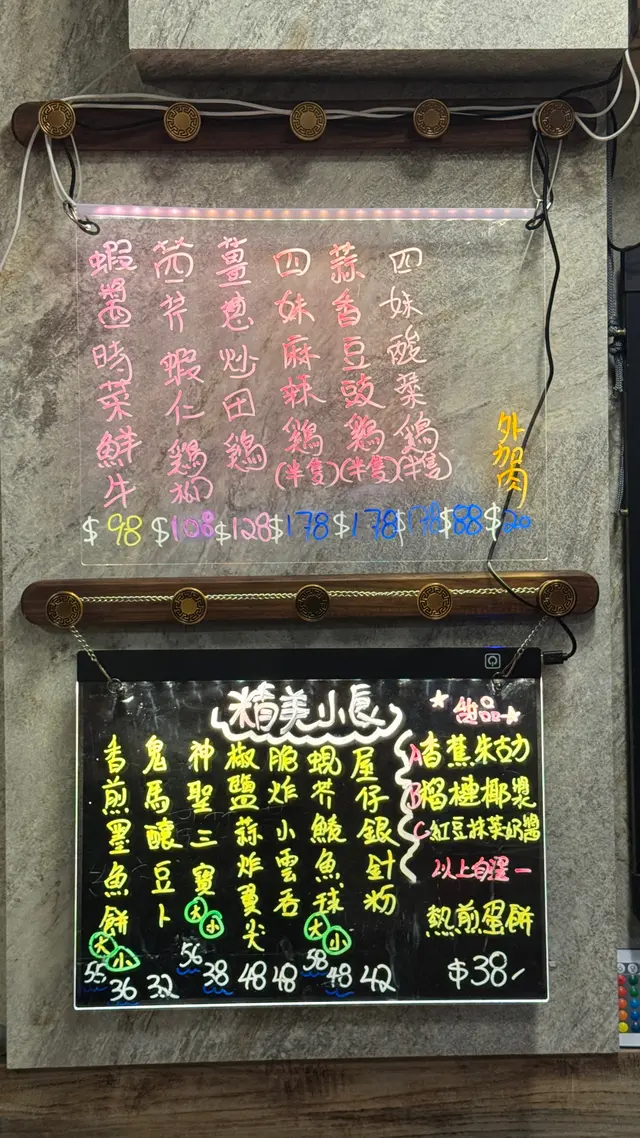 蝦醬時菜鮮牛
$98
芫芥蝦仁鷄柳
$108
薑蔥炒田鷄
$128
四妹麻辣鷄(半隻)
$178
蒜香豆豉鷄(半隻)
$178
四妹酸菜鷄(半隻)
$178
$88
外加肉
$20
精美小食
香煎墨魚餅
大 小
55 36
鬼馬釀豆卜
32
神聖三寶
大 小
56 38
椒鹽蒜炸翼尖
48
脆炸小雲吞
48
蜆芥鯪魚球
大 小
58 48
屋仔銀針粉
42
甜品
A香蕉朱古力
B榴槤椰漿
C紅豆抹茶奶醬
以上自選一
熱煎蛋餅
$38